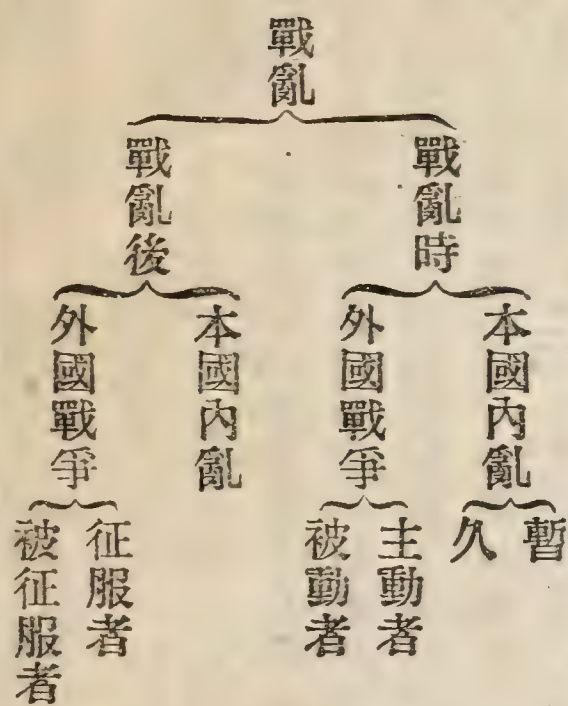 戰亂
戰亂時
本國內亂
暫
久
外國戰爭
主動者
被動者
戰亂後
本國內亂
外國戰爭
征服者
被征服者